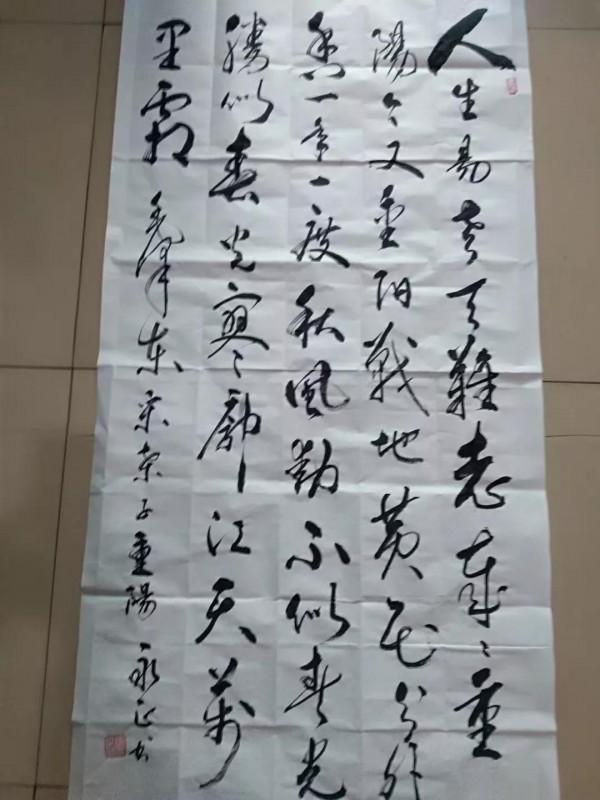 人生易老天難老歲〻重
陽今又重阳戰地黄花分外
香一年一度秋風勁不似春光
勝似春光寥廓江天萬
里霜 毛澤东采桑子重陽 永正书